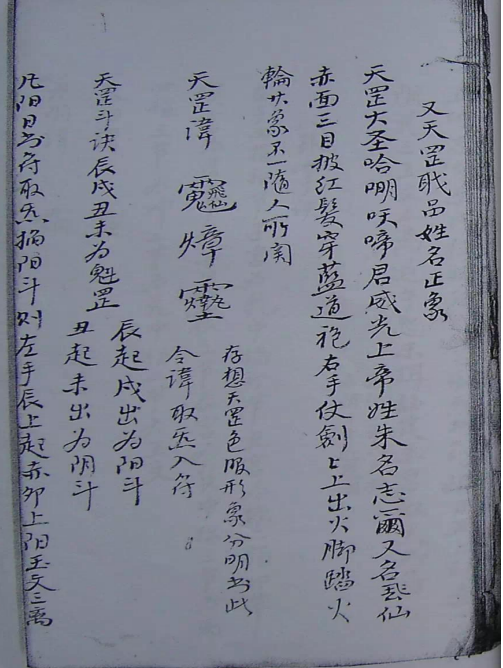 又天罡職品姓名正象
天罡大圣哈唎吠啼君威光上帝姓朱名志爾又名仙
赤面三目披红髮穿藍道袍右手仗劍劍上出火脚踏火
輪其象不一隨人所闵
天罡諱
存想天罡色服形象分明书此
令諱取炁入符
天罡斗诀辰戌丑未为魁罡
辰起戌出为阳斗
丑起未出为阴斗
凡阳日书符取炁掐阳斗则左手辰上起赤卯上阳玉文三离